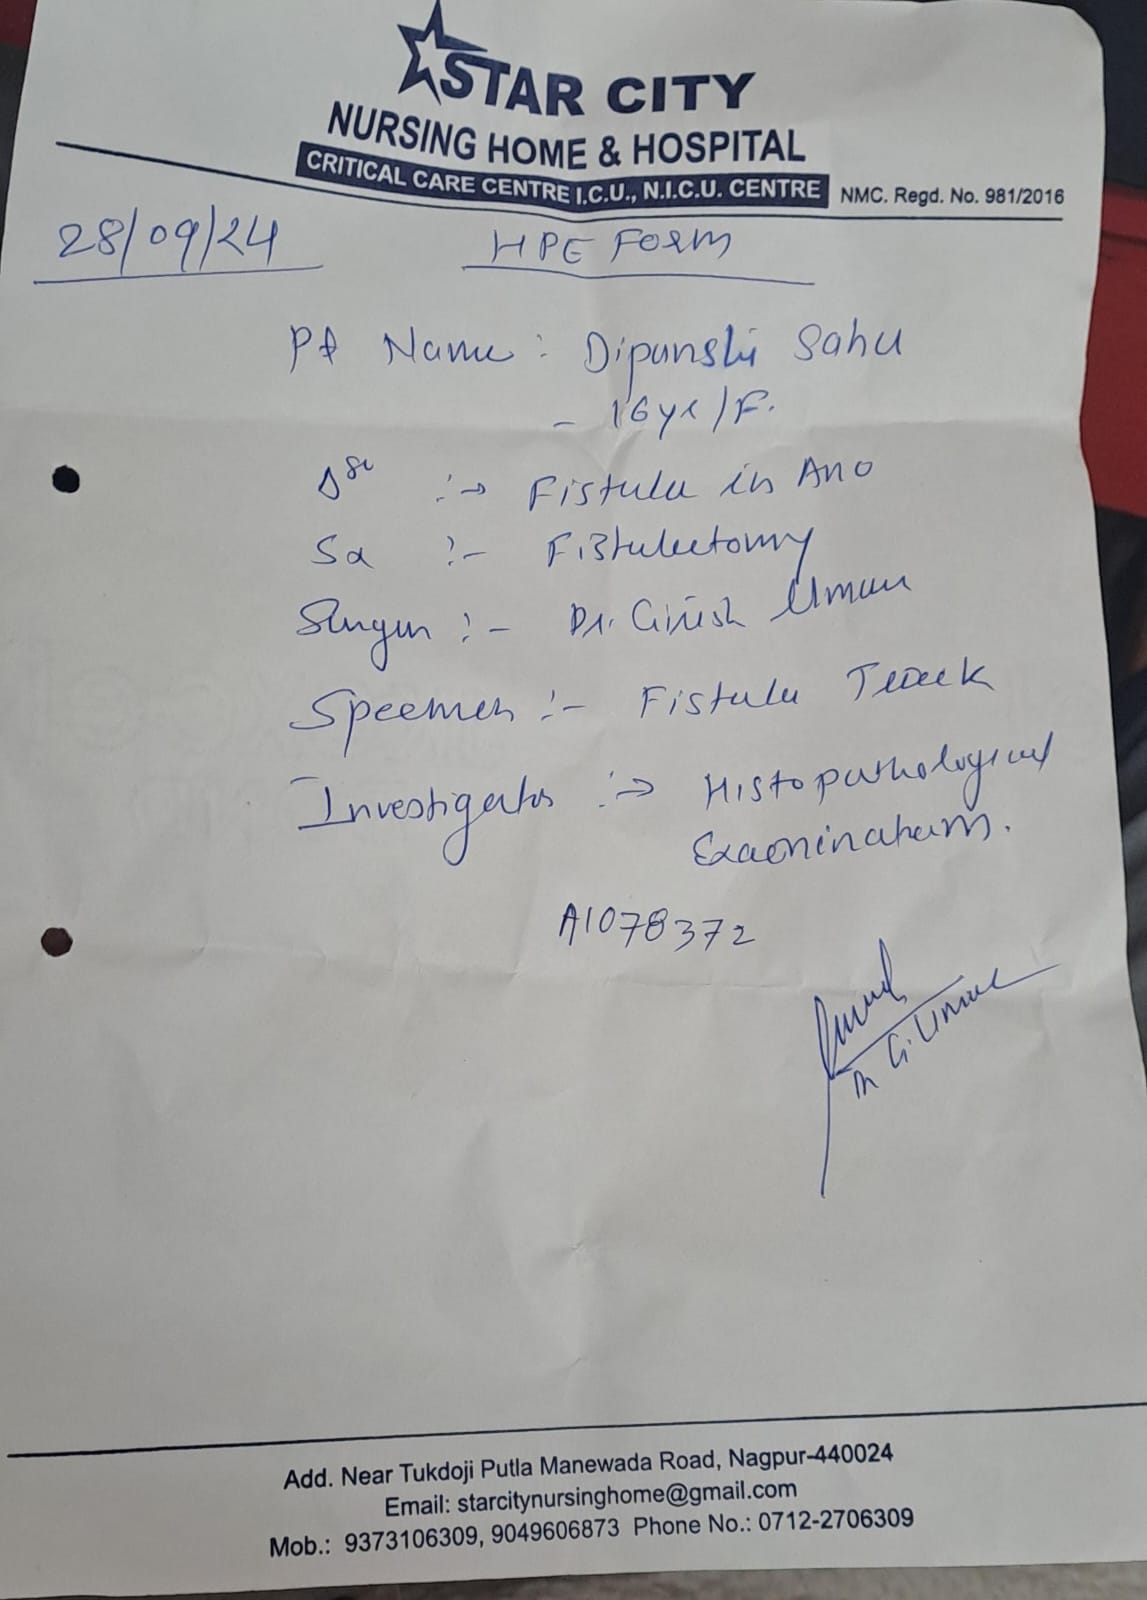 STAR CITY
NURSING HOME & HOSPITAL
CRITICAL CARE CENTRE I.C.U., N.I.C.U. CENTRE
NMC. Regd. No. 981/2016
28/09/24
HPE FORM
Pt Name : Dipanshi Sahu
- 16yr/F.
:→ Fistula in Ano
Sx :- Fistulectomy
Surgeon :- Dr. Girish Umare
Specimen :- Fistula Track
Investigation :→ Histopathological
Examination.
A1078372
Dr G. Umare
Add. Near Tukdoji Putla Manewada Road, Nagpur-440024
Email: starcitynursinghome@gmail.com
Mob.: 9373106309, 9049606873 Phone No.: 0712-2706309